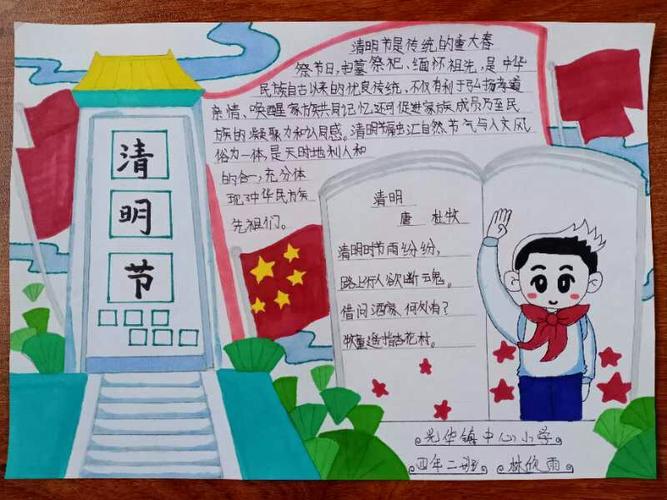 清明节
清明节是传统的重大春
祭节日,扫墓祭祀、缅怀祖先,是中华
民族自古以来的优良传统,不仅有利于弘扬孝道
亲情、唤醒家族共同记忆,还可促进家族成员乃至民
族的凝聚力和认同感。清明节融汇自然节气与人文风
俗为一体,是天时地利人和
的合一,充分体
现中华民族
先祖们。
清明
唐 杜牧
清明时节雨纷纷,
路上行人欲断魂。
借问酒家何处有?
牧童遥指杏花村。
光华镇中心小学
四年二班 林欣雨